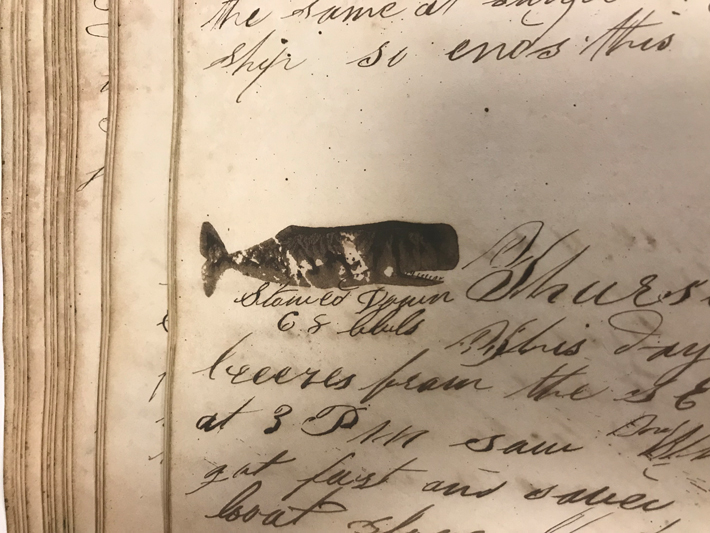 the same at
ship so ends this
Thurs
Stowed Down
68 bbls
This day
breezes from the S E
at 3 P M saw
got fast and saved
boat